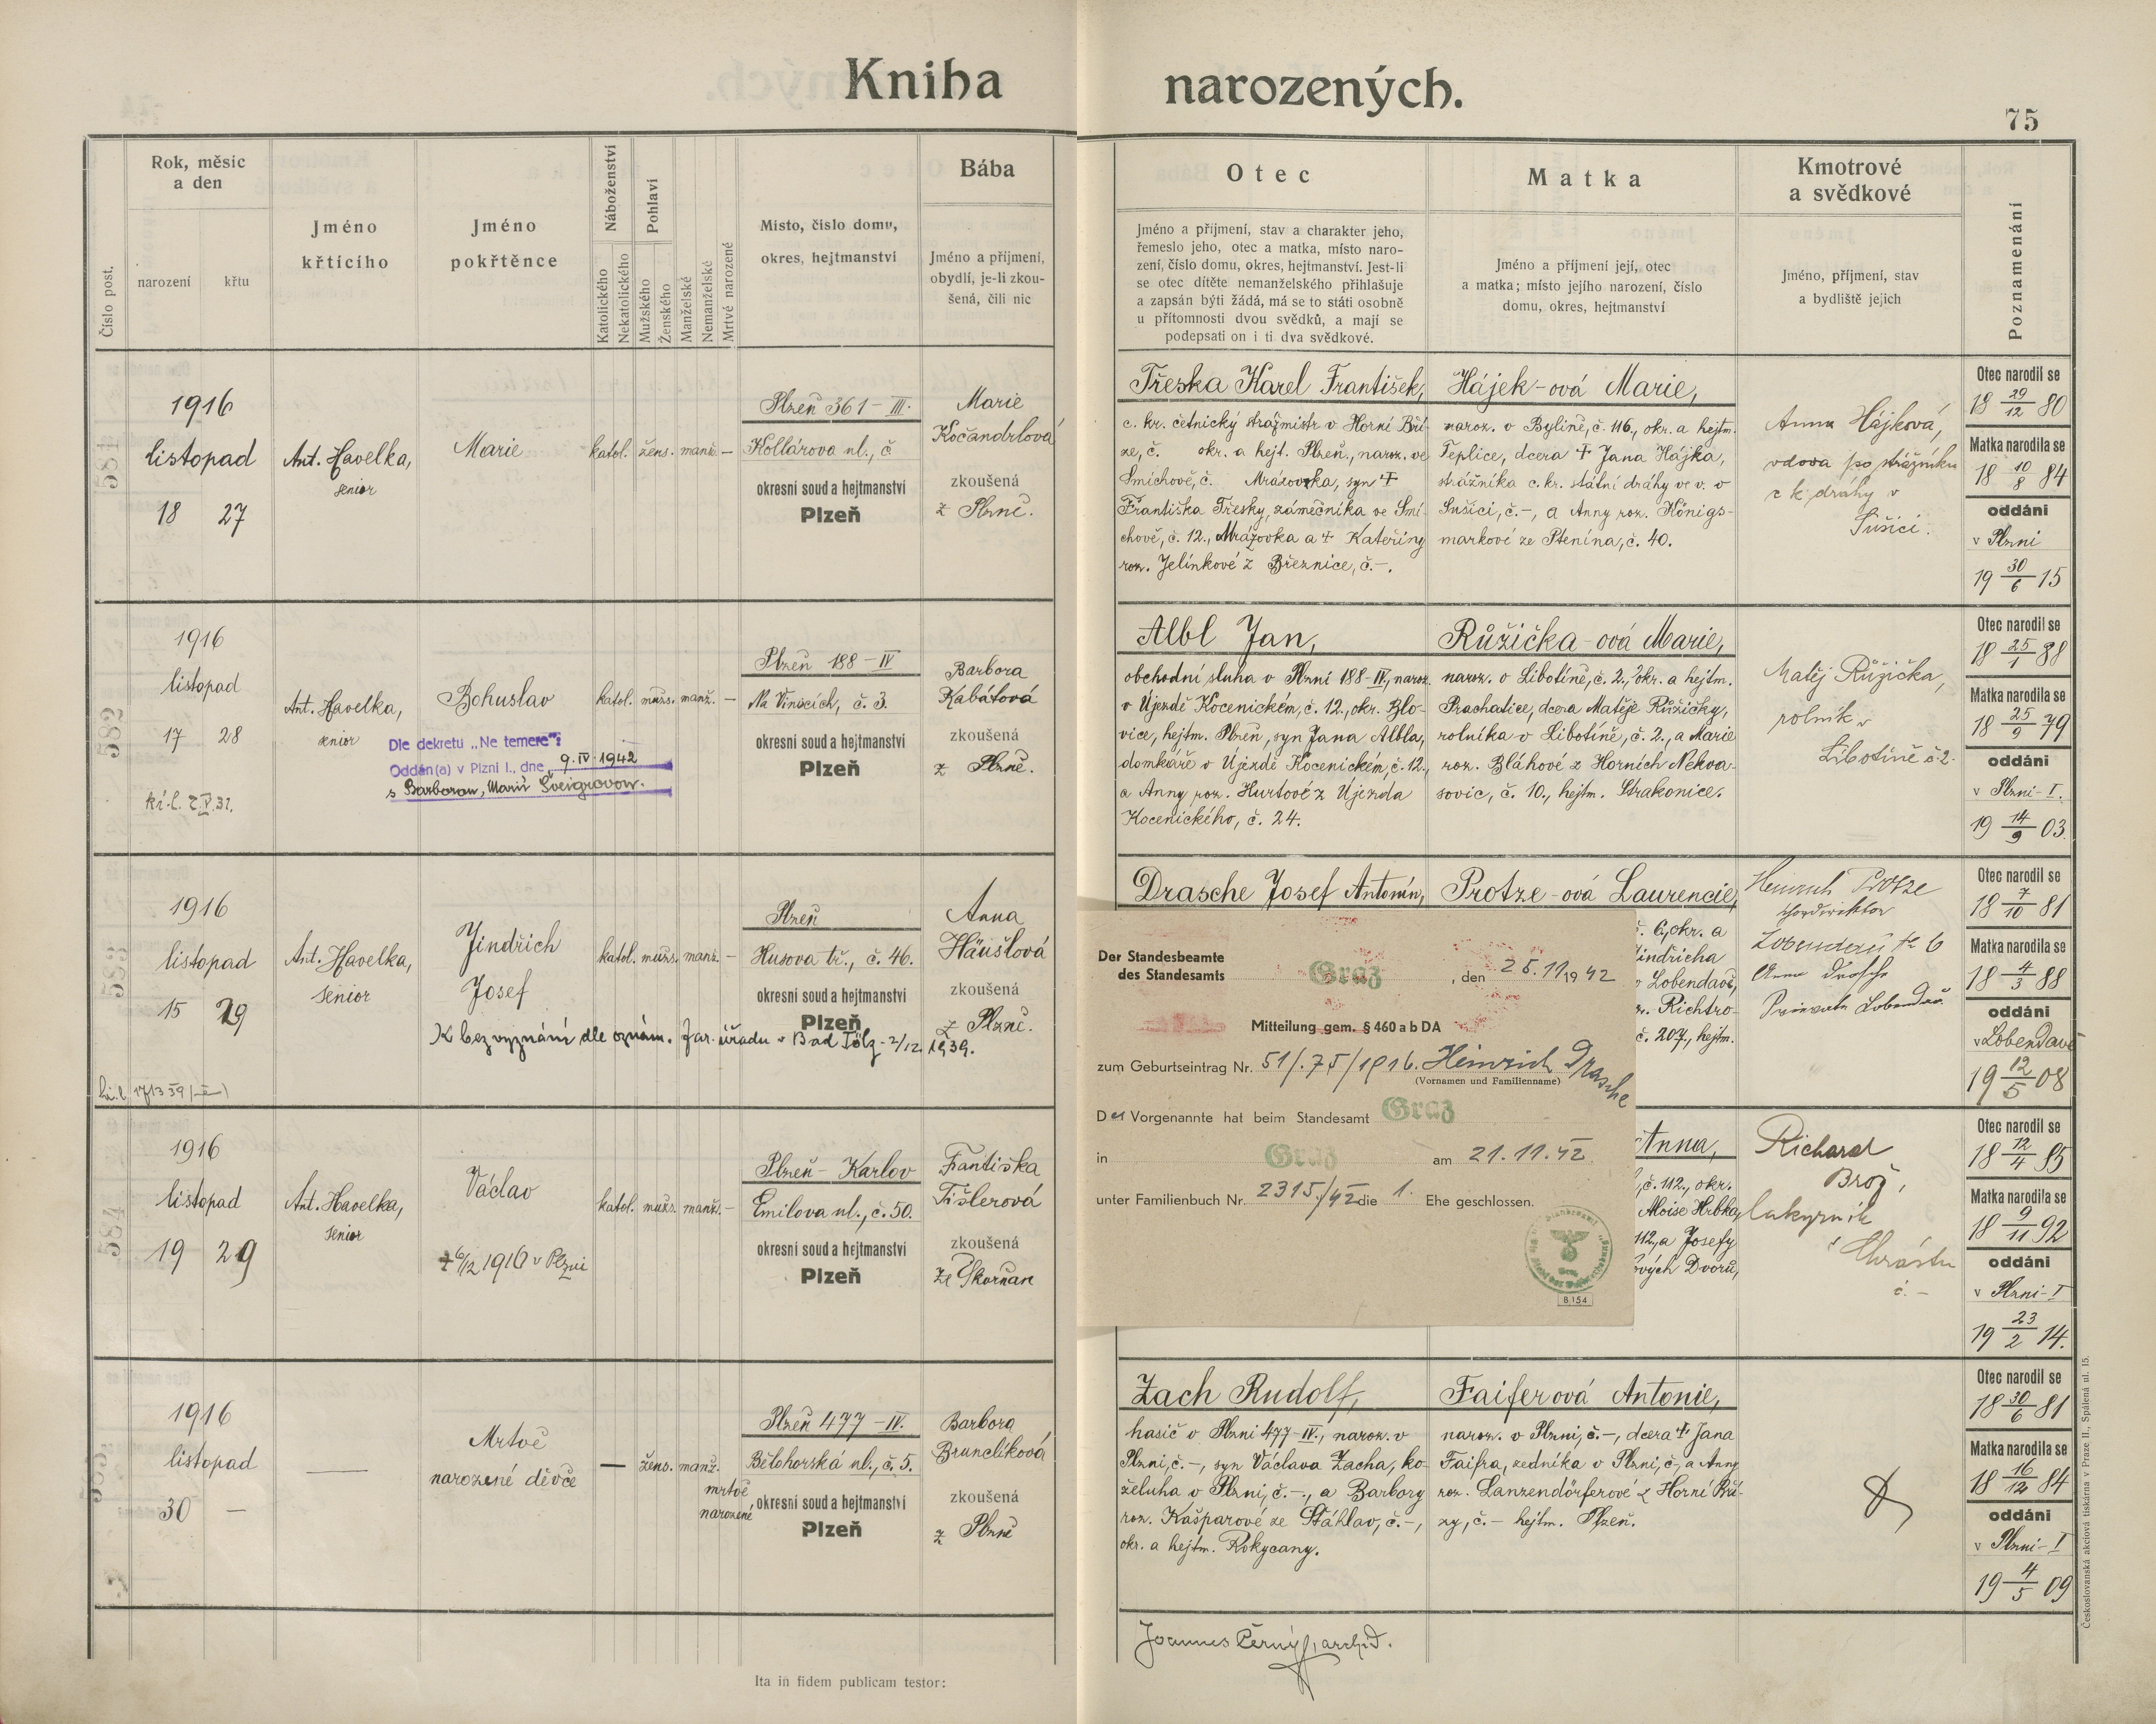 Kniha narozených.
75
Číslo post.
Rok, měsíc
a den
narození
křtu
Jméno
křtícího
Jméno
pokřtěnce
Náboženství
Katolického
Nekatolického
Pohlaví
Mužského
Ženského
Manželské
Nemanželské
Mrtvé narozené
Místo, číslo domu,
okres, hejtmanství
Bába
Jméno a příjmení,
obydlí, je-li zkou-
šená, čili nic
Otec
Jméno a příjmení, stav a charakter jeho,
řemeslo jeho, otec a matka, místo naro-
zení, číslo domu, okres, hejtmanství. Jest-li
se otec dítěte nemanželského přihlašuje
a zapsán býti žádá, má se to státi osobně
u přítomnosti dvou svědků, a mají se
podepsati on i ti dva svědkové.
Matka
Jméno a příjmení její, otec
a matka; místo jejího narození, číslo
domu, okres, hejtmanství
Kmotrové
a svědkové
Jméno, příjmení, stav
a bydliště jejich
Poznamenání
581
1916
listopad
18 27
Ant. Havelka,
senior
Marie
katol. žens. manž. –
Plzeň 361 – III.
Kollárova ul., č
okresní soud a hejtmanství
Plzeň
Marie
Kočandrlová
zkoušená
z Plzně.
Třeska Karel František,
c. kr. četnický strážmistr v Horní Bří-
ze, č. okr. a hejt. Plzeň, naroz. ve
Smíchově, č. Mrázovka, syn †
Františka Třesky, zámečníka ve Smí-
chově, č. 12., Mrázovka a † Kateřiny
roz. Jelínkové z Březnice, č. –.
Hájek-ová Marie,
naroz. v Bylině, č. 116, okr. a hejtm.
Teplice, dcera † Jana Hájka,
strážníka c. kr. státní dráhy ve v. v
Sušici, č. –, a Anny roz. Königs-
markové ze Ptenína, č. 40.
Anna Hájková,
vdova po strážníku
c k dráhy v
Sušici.
Otec narodil se
18 29/12 80
Matka narodila se
18 10/8 84
oddáni
v Plzni
19 30/6 15
582
1916
listopad
17 28
Ant. Havelka,
senior
Bohuslav
Dle dekretu „Ne temere":
Oddán(a) v Plzni I., dne 9. IV. 1942
s Barborou, Marií Šveigrovou.
katol. mužs. manž. –
Plzeň 188 – IV
Na Vinicích, č. 3.
okresní soud a hejtmanství
Plzeň
Barbora
Kabátová
zkoušená
z Plzně.
Albl Jan,
obchodní sluha v Plzni 188-IV, naroz.
v Újezdě Kocenickém, č. 12., okr. Blo-
vice, hejtm. Plzeň, syn Jana Albla,
domkáře v Újezdě Kocenickém, č. 12.,
a Anny roz. Hurtové z Újezda
Kocenického, č. 24.
Růžička-ová Marie,
naroz. v Libotíně, č. 2., okr. a hejtm.
Prachatice, dcera Matěje Růžičky,
rolníka v Libotíně, č. 2., a Marie
roz. Bláhové z Horních Nekva-
sovic, č. 10., hejtm. Strakonice.
Matěj Růžička,
rolník v
Libotíně č. 2.
Otec narodil se
18 25/1 88
Matka narodila se
18 25/9 79
oddáni
v Plzni-I.
19 14/9 03.
583
1916
listopad
15 29
Ant. Havelka,
senior
Jindřich
Josef
K bezvyznání dle oznám. far. úřadu v Bad Tölz - 2/12. 1939.
katol. mužs. manž. –
Plzeň
Husova tř., č. 46.
okresní soud a hejtmanství
Plzeň
Anna
Häuslová
zkoušená
z Plzně.
Drasche Josef Antonín,
Protze-ová Laurencie,
č. 6, okr. a
Jindřicha
v Lobendavě,
roz. Richtro-
č. 207., hejtm.
Heinrich Protze
Lobendau № 6
Anna Drasche
Private Lobendau
Otec narodil se
18 7/10 81
Matka narodila se
18 4/3 88
oddáni
v Lobendavě
19 12/5 08
Der Standesbeamte
des Standesamts Graz, den 25.11.1942
Mitteilung gem. § 460 a b DA
zum Geburtseintrag Nr. 51/.75/1916. Heinrich Drasche
(Vornamen und Familienname)
Der Vorgenannte hat beim Standesamt Graz
in Graz am 21.11.42
unter Familienbuch Nr. 2315/42 die 1. Ehe geschlossen.
B 154
584
1916
listopad
19 29
Ant. Havelka,
senior
Václav
† 6/12 1916 v Plzni
katol. mužs. manž. –
Plzeň – Karlov
Emilova ul., č. 50.
okresní soud a hejtmanství
Plzeň
Františka
Tišlerová
zkoušená
ze Škvrňan
Anna,
č. 112., okr.
Aloise Hrbka,
112, a Josefy
ových Dvorů,
Richard
Brož,
lakyrník
v Chrástu
č. –
Otec narodil se
18 12/4 85
Matka narodila se
18 9/11 92
oddáni
v Plzni-I
19 23/2 14.
585
1916
listopad
30 –
Mrtvě
narozené děvče
— žens. manž.
mrtvě
narozené
Plzeň 477 – IV.
Bělohorská ul., č. 5.
okresní soud a hejtmanství
Plzeň
Barbora
Brunclíková
zkoušená
z Plzně
Zach Rudolf,
hasič v Plzni 477-IV., naroz. v
Plzni, č. –, syn Václava Zacha, ko-
želuha v Plzni, č. –, a Barbory
roz. Kašparové ze Šťáhlav, č. –,
okr. a hejtm. Rokycany.
Faiferová Antonie,
naroz. v Plzni, č. –, dcera † Jana
Faifra, zedníka v Plzni, č., a Anny
roz. Lanzendörferové z Horní Bří-
zy, č. – hejtm. Plzeň.
Otec narodil se
18 30/6 81
Matka narodila se
18 16/12 84
oddáni
v Plzni-I
19 4/5 09
Joannes Černý, archid.
Ita in fidem publicam testor:
Českoslovanská akciová tiskárna v Praze II., Spálená ul. 15.